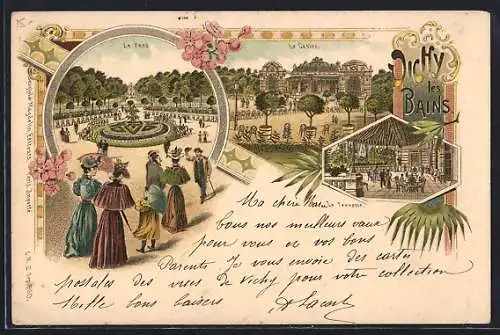 Le Parc
Le Casino
VICHY
les
BAINS
La Terrasse
Ma chère
tous nos meilleurs vœux
pour vous et vos bons
Parents Je vous envoie des cartes
postales des vues de Vichy pour votre collection
Mille bons baisers